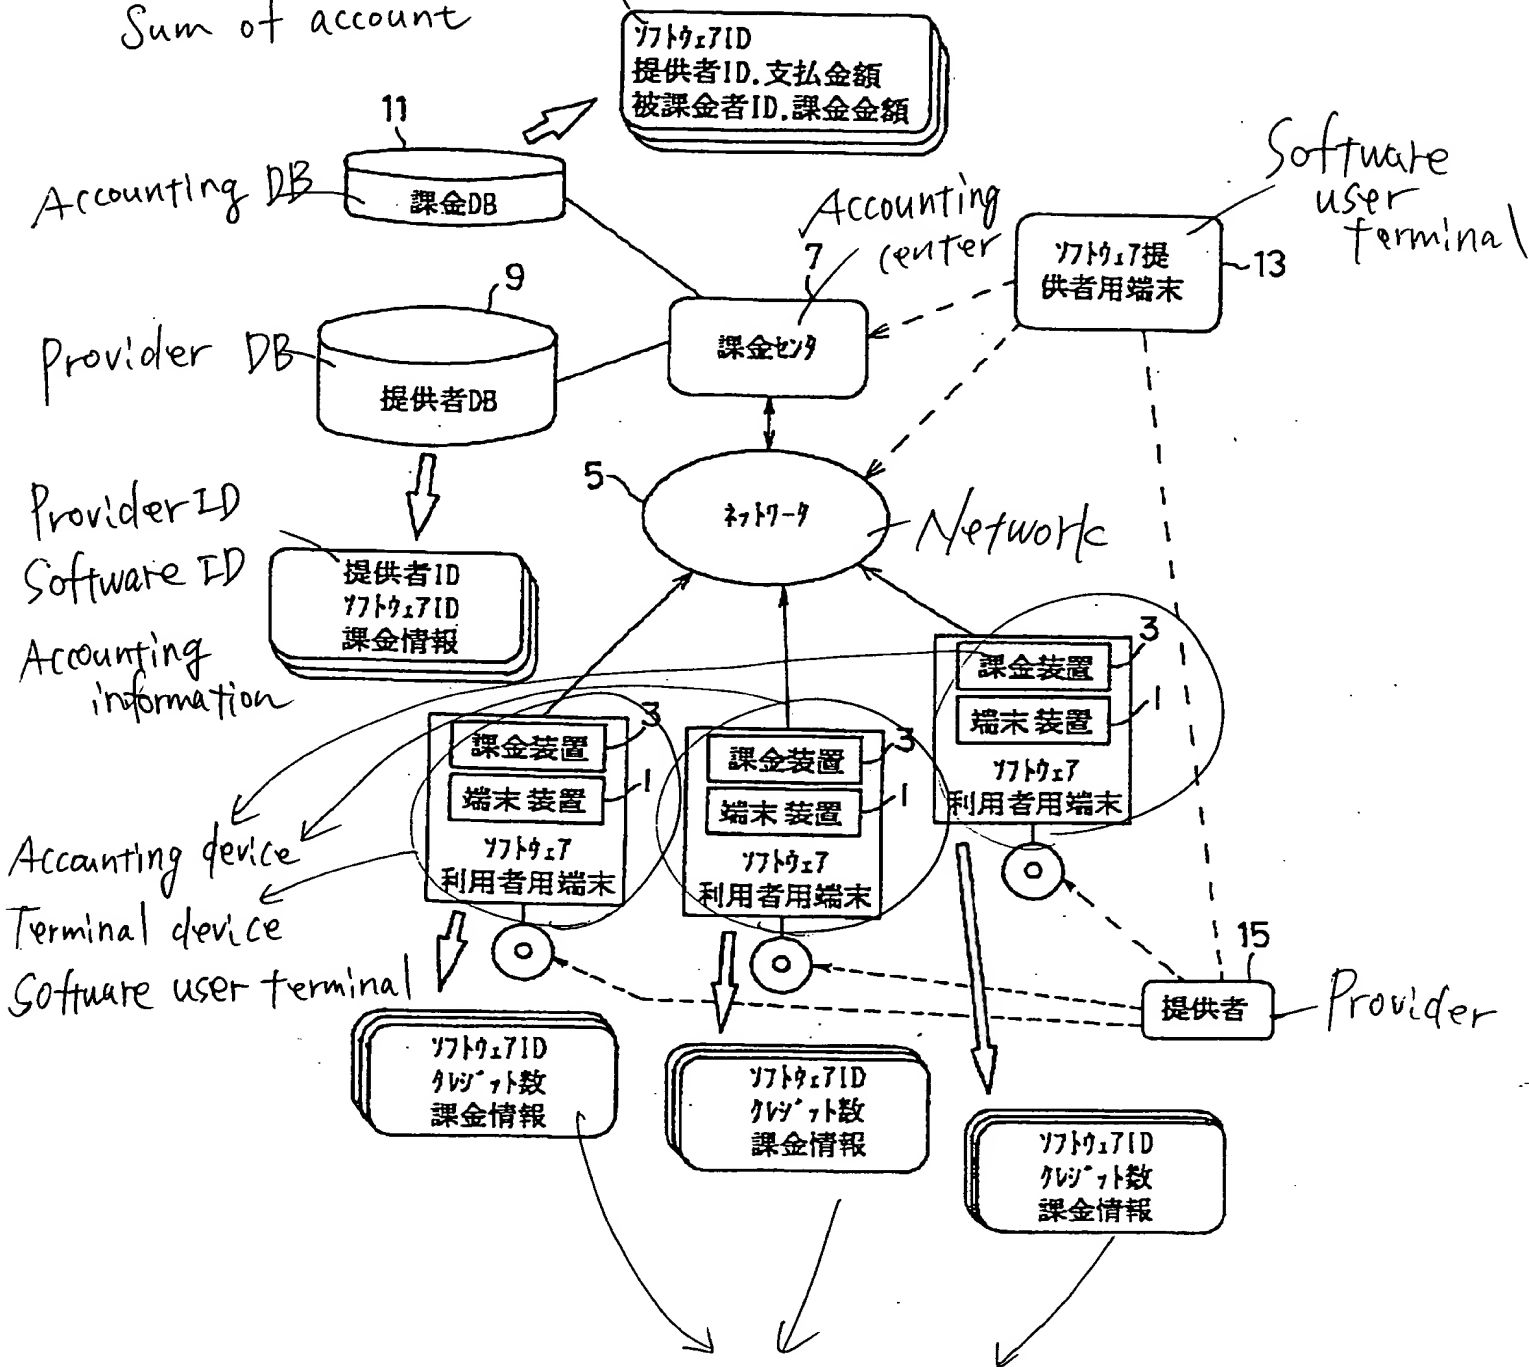 Sum of account
ソフトウェアID
提供者ID.支払金額
被課金者ID.課金金額
11
Accounting DB
課金DB
Accounting
center
7
Software
user
terminal
ソフトウェア提
供者用端末
13
9
Provider DB
提供者DB
課金センタ
5
ネットワータ
Network
Provider ID
Software ID
Accounting
information
提供者ID
ソフトウェアID
課金情報
課金装置
3
端末装置
1
ソフトウェア
利用者用端末
課金装置
3
端末装置
1
ソフトウェア
利用者用端末
課金装置
3
端末装置
1
ソフトウェア
利用者用端末
Accounting device
Terminal device
Software user terminal
15
提供者
Provider
ソフトウェアID
クレジット数
課金情報
ソフトウェアID
クレジット数
課金情報
ソフトウェアID
クレジット数
課金情報